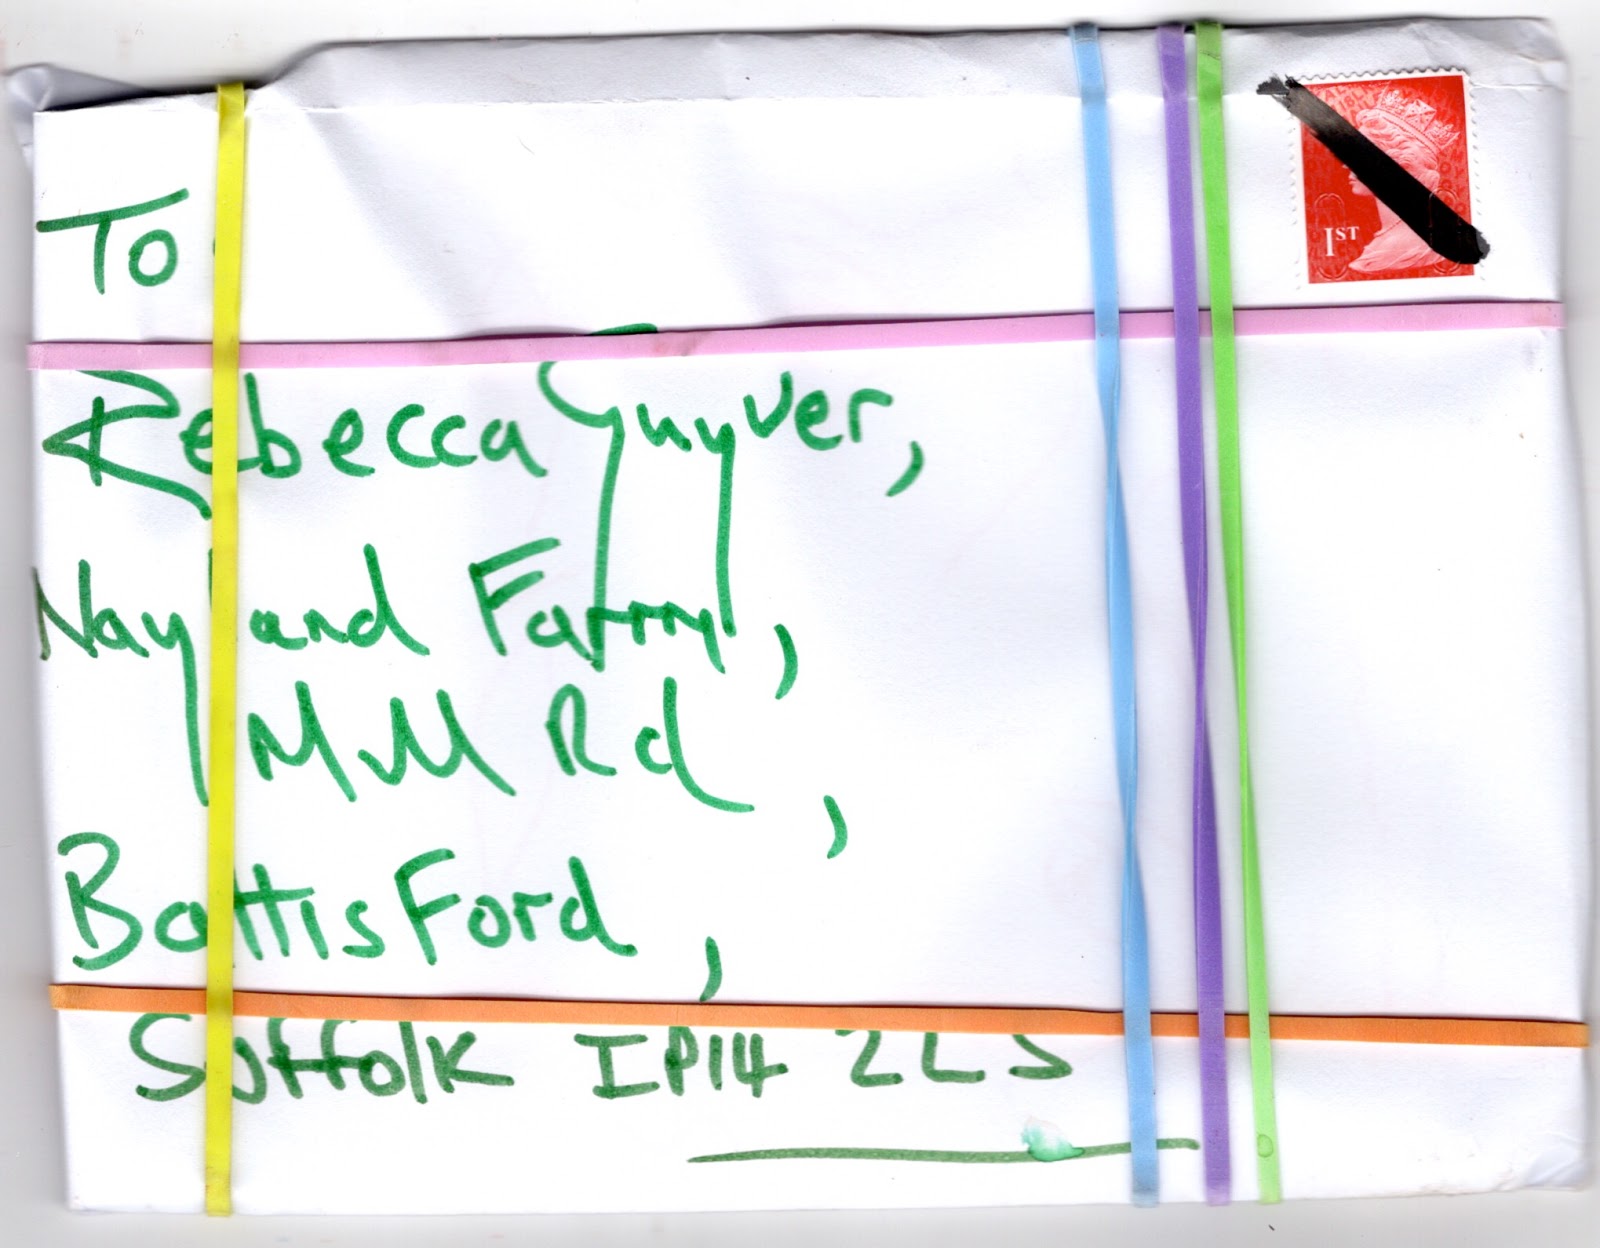 1ST
To
Rebecca Guyver,
Nayland Farm,
Mill Rd,
Battisford,
Suffolk IP14 2LS